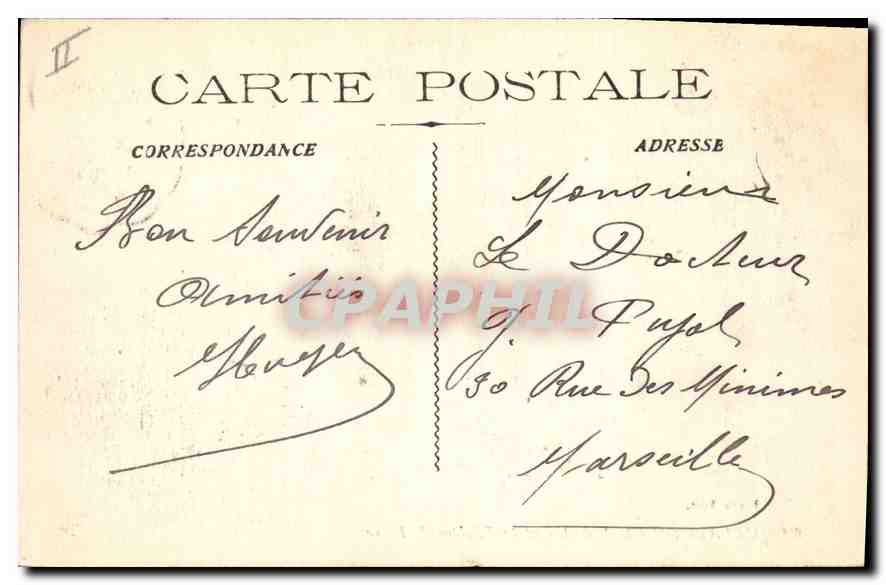 II
CARTE POSTALE
CORRESPONDANCE
ADRESSE
Bon Souvenir
Amitiés
Monsieur
Le Docteur
J. Pujol
30 Rue Des Minimes
Marseille
CPAPHIL